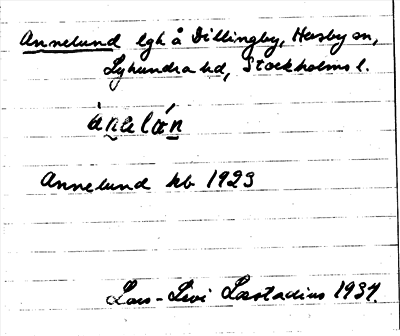 Annelund lgh å Dillingby, Husby sn,
Lyhundra hd, Stockholms l.
ànelán
Annelund kb 1923
Lars-Levi Læstadius 1937.